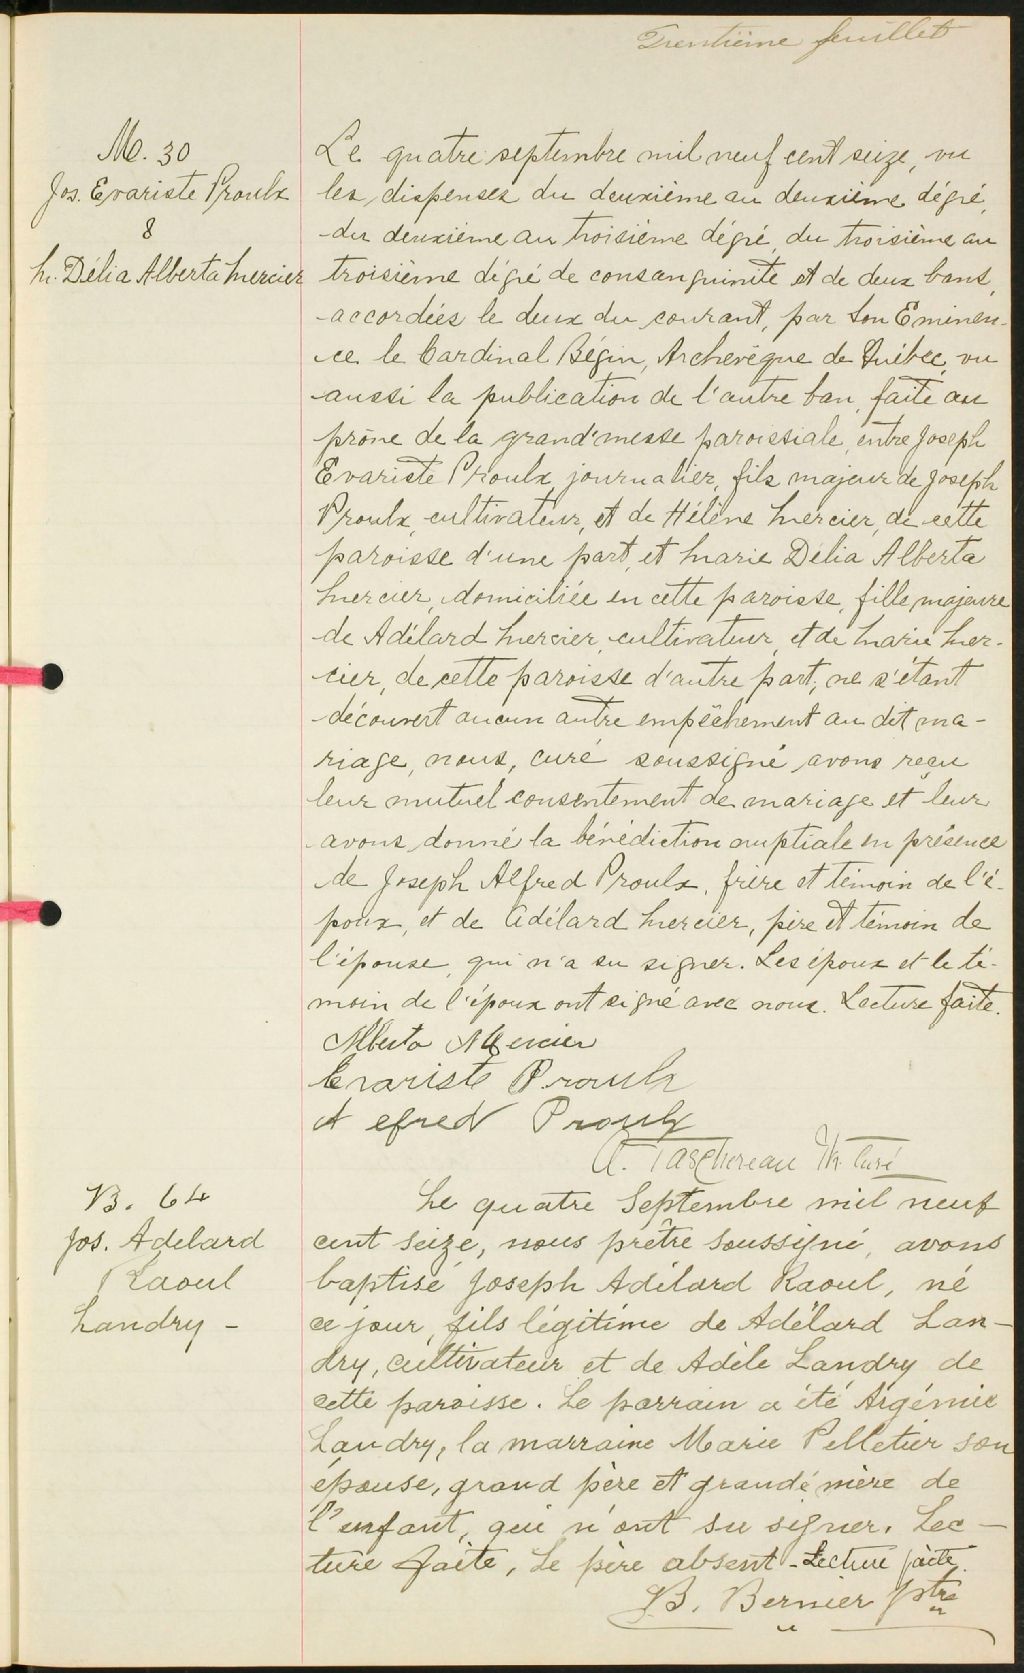 Trentième feuillet
M. 30
Jos. Evariste Proulx
&
M. Délia Alberta Mercier
Le quatre septembre mil neuf cent seize, vu
les dispenses du deuxième au deuxième dégré,
du deuxième au troisième dégré, du troisième au
troisième dégré de consanguinité et de deux bans,
accordées le deux du courant, par Son Eminen-
ce le Cardinal Bégin, Archevêque de Québec, vu
aussi la publication de l'autre ban, faite au
prône de la grand'messe paroissiale, entre Joseph
Evariste Proulx, journalier, fils majeur de Joseph
Proulx, cultivateur, et de Hélène Mercier, de cette
paroisse d'une part, et Marie Délia Alberta
Mercier, domiciliée en cette paroisse, fille majeure
de Adélard Mercier, cultivateur, et de Marie Mer-
cier, de cette paroisse d'autre part; ne s'étant
découvert aucun autre empêchement au dit ma-
riage, nous, curé soussigné avons reçu
leur mutuel consentement de mariage et leur
avons donné la bénédiction nuptiale en présence
de Joseph Alfred Proulx, frère et témoin de l'é-
poux, et de Adélard Mercier, père et témoin de
l'épouse, qui n'a su signer. Les époux et le té-
moin de l'époux ont signé avec nous. Lecture faite.
Alberta Mercier
Evariste Proulx
Alfred Proulx
A. Taschereau Ptr. Curé
B. 64
Jos. Adelard
Raoul
Landry -
Le quatre Septembre mil neuf
cent seize, nous prêtre soussigné, avons
baptisé Joseph Adélard Raoul, né
ce jour, fils légitime de Adélard Lan-
dry, cultivateur et de Adèle Landry de
cette paroisse. Le parrain a été Argénie
Landry, la marraine Marie Pelletier son
épouse, grand père et grand'mère de
l'enfant, qui n'ont su signer. Lec-
ture faite, Le père absent - Lecture faite
B. Bernier Ptre